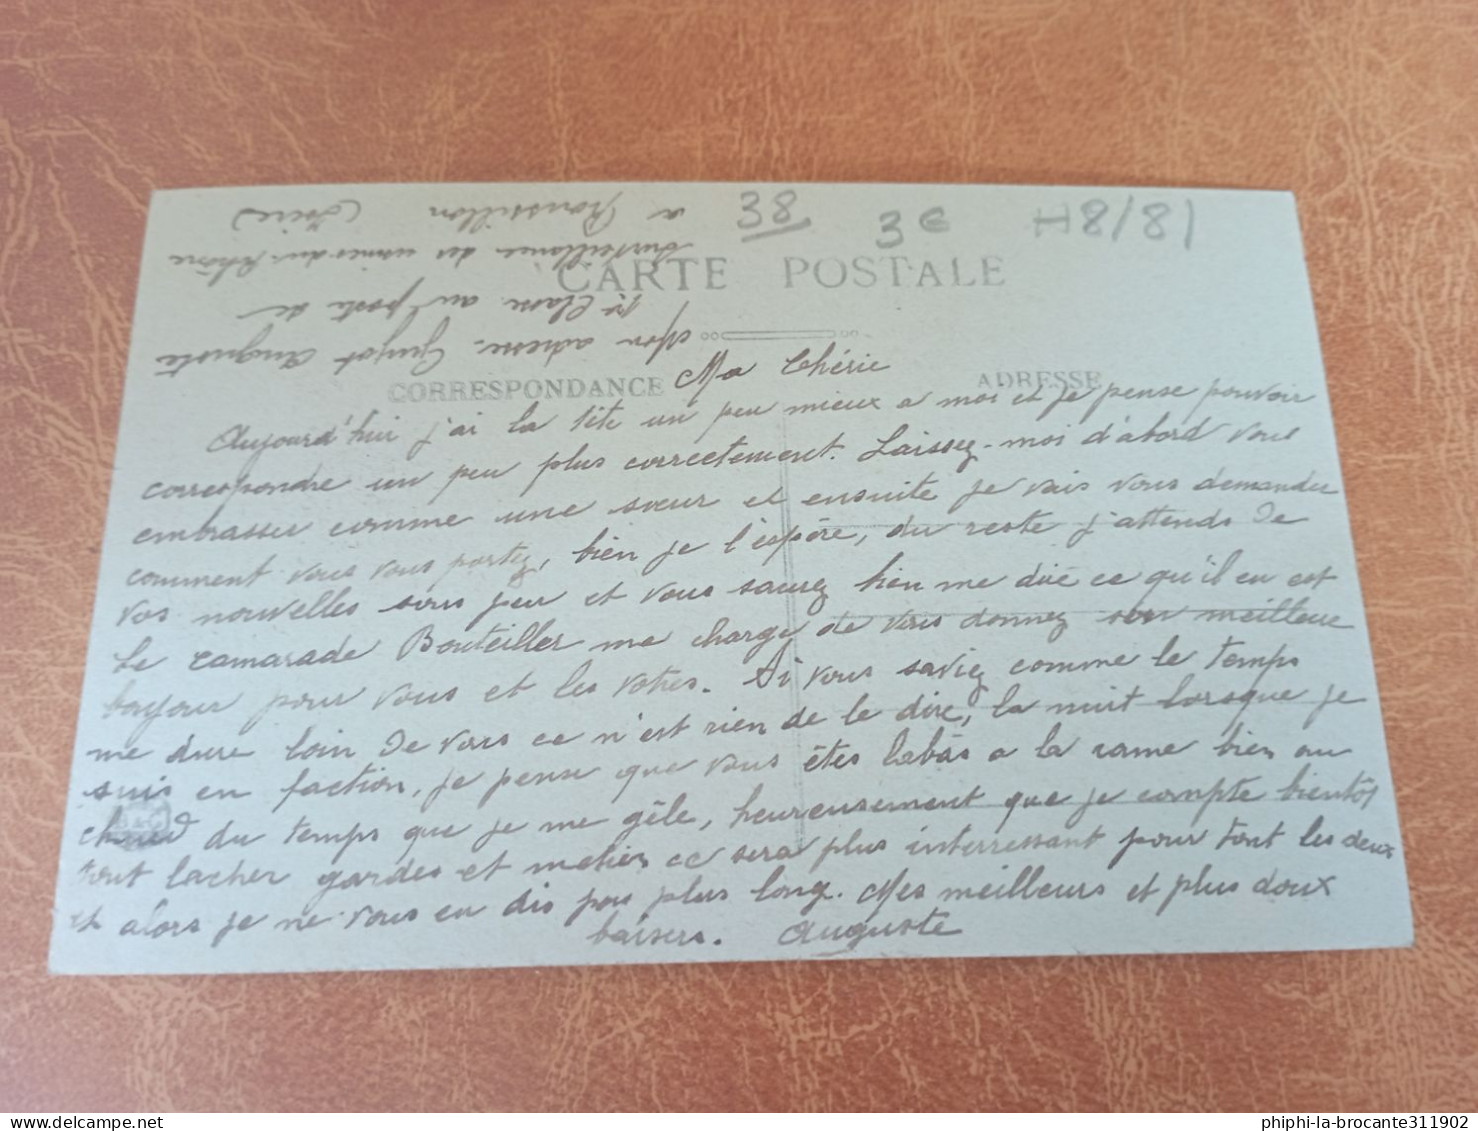 38
3€
H8/81
CARTE POSTALE
Mon adresse. Guyot Auguste
1re Classe au poste de
Surveillance des usines du Rhône
a Roussillon (Isère)
CORRESPONDANCE
ADRESSE
Ma Chérie
Aujourd'hui j'ai la tête un peu mieux a moi et je pense pouvoir
correspondre un peu plus correctement. Laissez-moi d'abord vous
embrasser comme une sœur et ensuite je vais vous demander
comment vous vous portez, bien je l'espère, du reste j'attends de
vos nouvelles sous peu et vous saurez bien me dire ce qu'il en est
Le camarade Bouteiller me charge de vous donnez son meilleur
bonjour pour vous et les votres. Si vous saviez comme le temps
me dure loin de vous ce n'est rien de le dire, la nuit lorsque je
suis en faction, je pense que vous êtes labàs a la rame bien au
chaud du temps que je me gèle, heureusement que je compte bientôt
tout lacher gardes et metier ce sera plus interressant pour tout les deux
et alors je ne vous en dis pas plus long. Mes meilleurs et plus doux
baisers. Auguste
phiphi-la-brocante311902